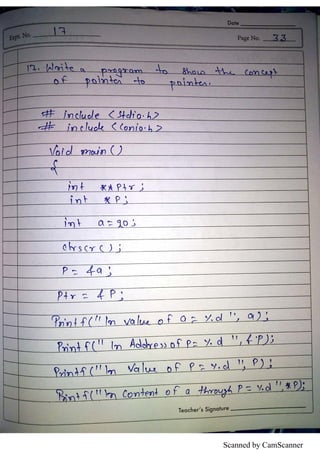 Date
Expt. No. 17
Page No. 33
17. Write a program to show the concept
of pointer to pointer.
# include <stdio.h>
# include <conio.h>
Void main ()
{
int **Ptr ;
int *P ;
int a = 20 ;
clrscr ( ) ;
P = &a ;
Ptr = & P ;
Printf("\n value of a = %d ", a);
Printf(" \n Address of P = %d ", &P);
Printf("\n Value of P = %d ", P);
Printf("\n Content of a through P = %d ", *P);
Teacher's Signature
Scanned by CamScanner